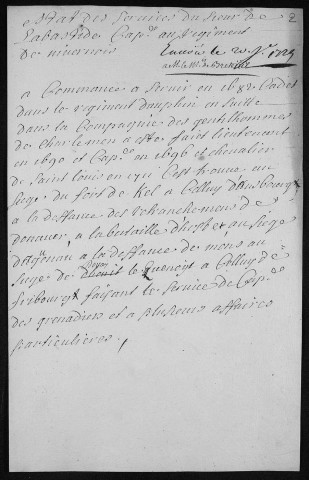 Estat des services du sieur de 2
Labastide Cap.ne au regiment
de nivernois
Envoiés le 20 1729
a M. le M. de
a Commencé a servir en 1682 Cadet
dans le regiment dauphin en suitte
dans la Compagnie des gentilhommes
de charlemon a esté fait lieutenant
en 1690 et Cap.ne en 1696 et chevalier
de saint louis en 1711 Cest trouvé au
siege du fort de Kel a Celluy d'ausbourg
a la deffance des retranchemens de
donauer, a la bataille d'hochet au siege
d'aguenau a la deffance de mons au
siege de le quenoyt a Celluy de
fribourgt faisant le service de Cap.ne
des grenadiers et a plusieurs affaires
particulieres